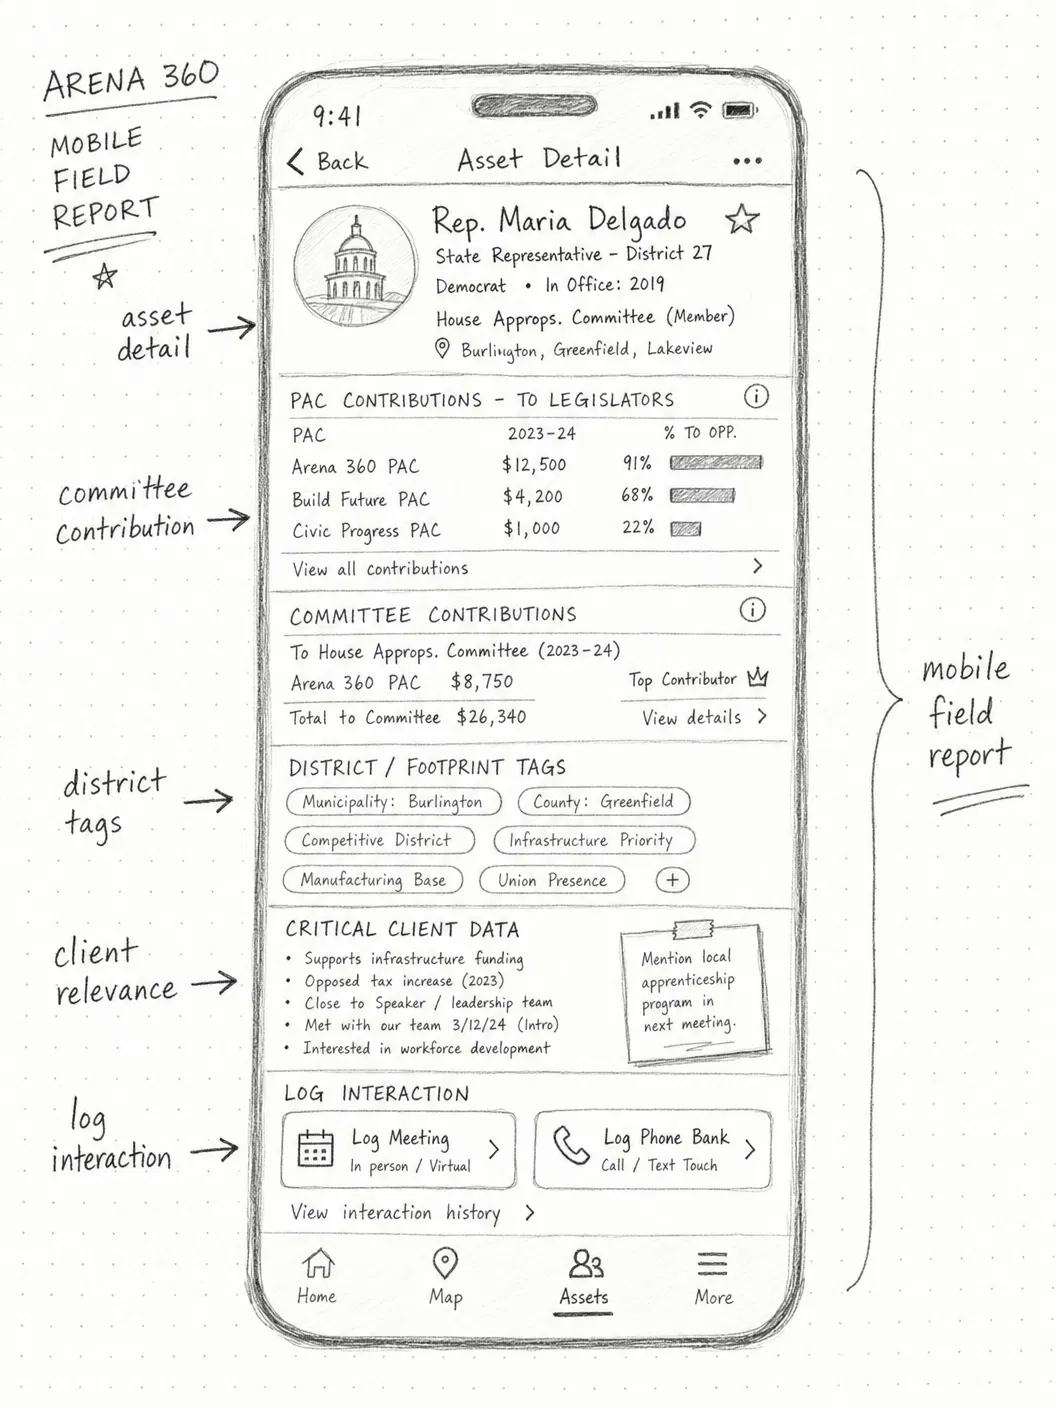 ARENA 360
MOBILE
FIELD
REPORT
asset
detail
committee
contribution
district
tags
client
relevance
log
interaction
9:41
Back
Asset Detail
Rep. Maria Delgado
State Representative – District 27
Democrat • In Office: 2019
House Approps. Committee (Member)
Burlington, Greenfield, Lakeview
PAC CONTRIBUTIONS – TO LEGISLATORS
PAC 2023-24 % TO OPP.
Arena 360 PAC $12,500 91%
Build Future PAC $4,200 68%
Civic Progress PAC $1,000 22%
View all contributions >
COMMITTEE CONTRIBUTIONS
To House Approps. Committee (2023-24)
Arena 360 PAC $8,750 Top Contributor
Total to Committee $26,340 View details >
DISTRICT / FOOTPRINT TAGS
Municipality: Burlington County: Greenfield
Competitive District Infrastructure Priority
Manufacturing Base Union Presence +
CRITICAL CLIENT DATA
• Supports infrastructure funding
• Opposed tax increase (2023)
• Close to Speaker / leadership team
• Met with our team 3/12/24 (Intro)
• Interested in workforce development
Mention local
apprenticeship
program in
next meeting.
LOG INTERACTION
Log Meeting
In person / Virtual
Log Phone Bank
Call / Text Touch
View interaction history >
Home Map Assets More
mobile
field
report